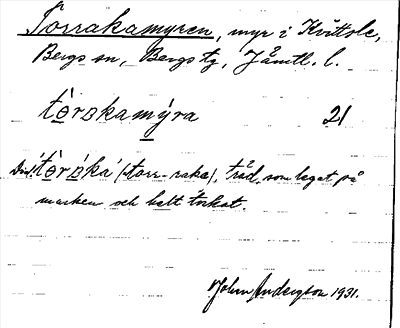 Torrakamyren, myr i Kvittsle,
Bergs sn, Bergs tg, Jämtl. l.
tò̱rɒkamy̱ra 21
Dial. 'tò̱rɒ́ka' (torr-raka), träd, som legat på
marken och halt torkat.
John Anderzson 1931.